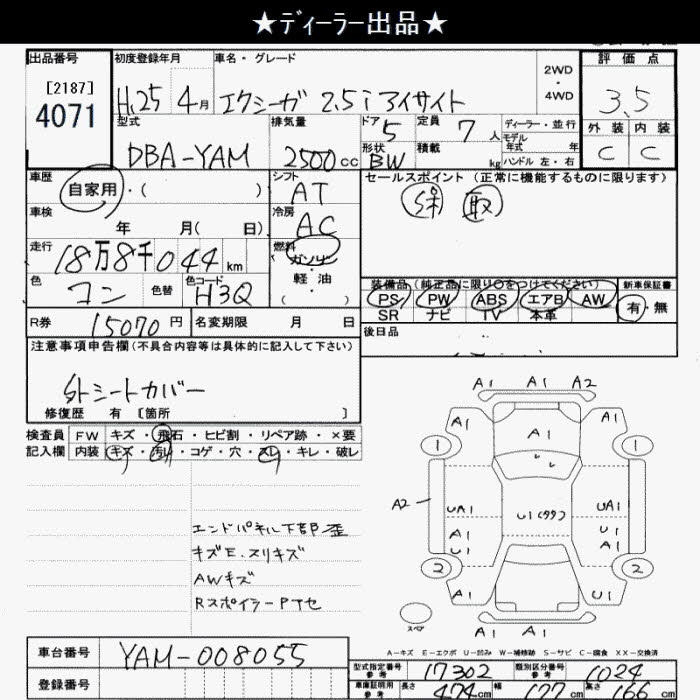 ★ディーラー出品★
出品番号 初度登録年月 車名・グレード 2WD・4WD 評価点
[2187]
4071
H.25 4月 エクシーガ 2.5i アイサイト 3.5
型式 排気量 ドア 5 定員 7人 ディーラー・並行 外装 内装
DBA-YAM 2500cc 形状 BW 積載 kg モデル年式 年 C C
ハンドル 左・右
車歴 シフト セールスポイント (正常に機能するものに限ります)
自家用・( ) AT 保 取
車検 冷房
年 月( 日) AC
走行 18万8千044km 燃料 ガソリン
・
軽油 装備品 (純正品に限り○をつけてください) 新車保証書
色 コン 色替 色コード H3Q ( ) PS PW ABS エアB AW 有・無
SR ナビ TV 本革
R券 15070円 名変期限 月 日 後日品
注意事項申告欄 (不具合内容等は具体的に記入して下さい)
外シートカバー
修復歴 有 [箇所 ]
検査員 FW キズ・飛石・ヒビ割・リペア跡・×要
記入欄 内装 キズ・汚れ・コゲ・穴・スレ・キレ・破レ
エンドパネル下部歪
キズE.スリキズ
AWキズ
RスポイラーPTセ
A1 A1 A2
A1 A1
1 A1 1
A2 UA1 U1(タタ) UA1
A1 A1
U1 U1
2 2
A1 U1
スペア A1 A1
A-キズ E-エクボ U-凹み W-補修跡 S-サビ C-腐食 XX-交換済
車台番号 YAM-008055
型式指定番号 参考 17302 類別区分番号 参考 1024
登録番号 車庫証明用 参考 長さ 474cm 幅 177cm 高さ 166cm